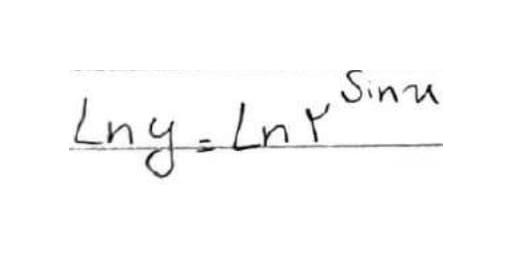 Ln y = Ln ۲^Sin x